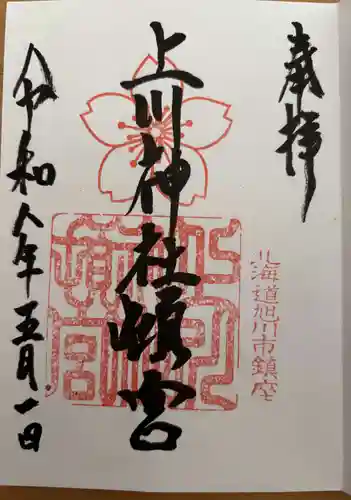 奉拝
北海道旭川市鎮座
上川神社頓宮
令和八年五月一日